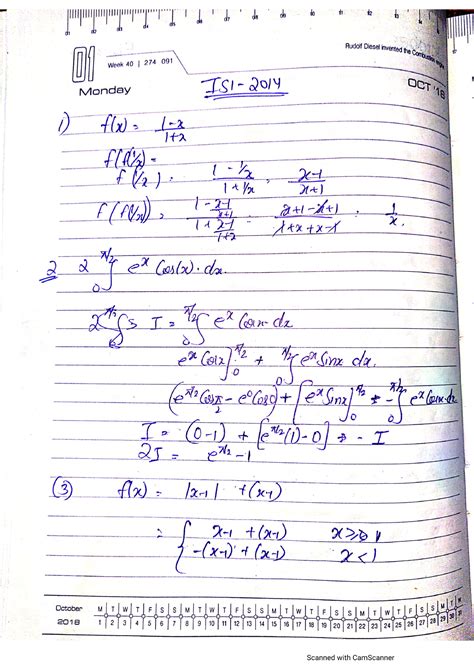 Rudolf Diesel invented the Combustion engine
01
Week 40 | 274 091
Monday
OCT '18
ISI-2014
1) f(x) = 1-x / 1+x
f(f(1/x) =
f(1/x) = 1-1/x / 1+1/x = x-1 / x+1
f(f(1/x)) = 1 - x-1/x+1 / 1 + x-1/1+x = x+1-x+1 / 1+x+x-1 = 1/x.
2 2 ∫₀^π/2 e^x Cos(x)·dx.
I = ∫₀^π/2 e^x Cosx·dx
e^x Cosx]₀^π/2 + ∫₀^π/2 e^x Sinx dx.
(e^π/2 Cos π/2 - e^0 Cos0) + [e^x Sinx]₀^π/2 - ∫₀^π/2 e^x Cosx·dx
I = (0-1) + [e^π/2(1)-0] - I
2I = e^π/2 -1
(3) f(x) = |x-1| + (x-1)
= { x-1 + (x-1) x≥1
-(x-1) + (x-1) x<1
October M T W T F S S M T W T F S S M T W T F S S M T W T F S S M T W
2018 1 2 3 4 5 6 7 8 9 10 11 12 13 14 15 16 17 18 19 20 21 22 23 24 25 26 27 28 29 30 31
Scanned with CamScanner